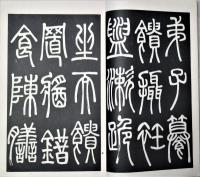 弟子饌
饋攝衽
盥漱跪
坐而饋
置醬錯
食陳膳